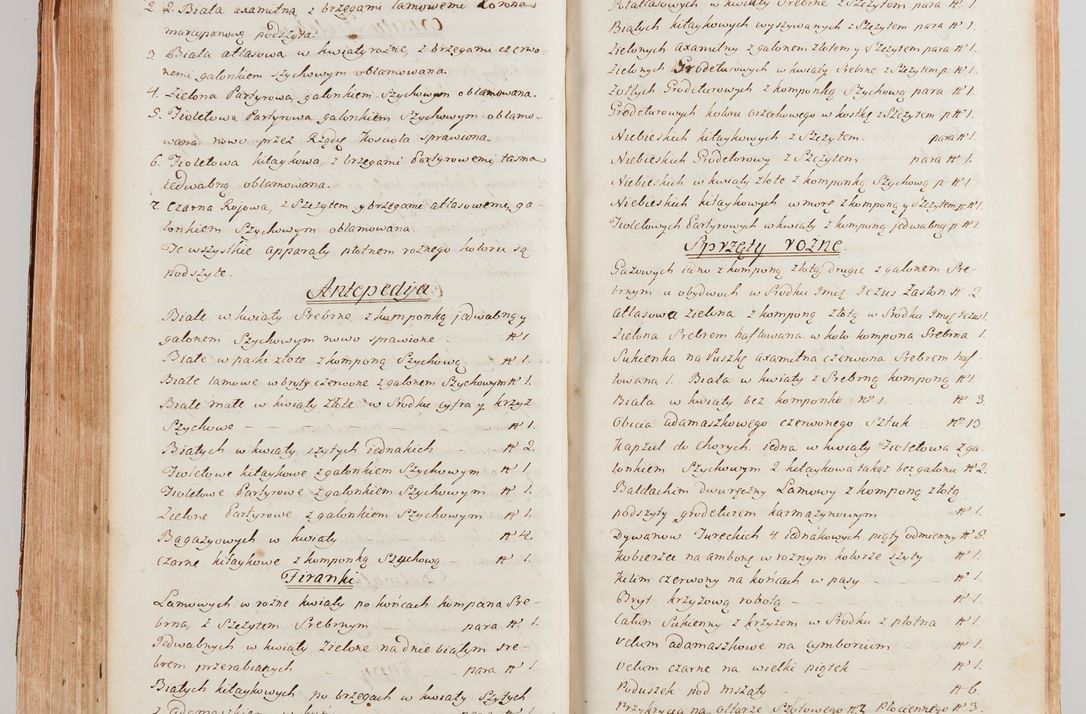 2. 2. Biała axamitna, z brzegami lamowemi Korona
marcypanową podszyta.
3. Biała atłasowa w kwiaty rożne, z brzegami czerwo-
nemi galonkiem Szychowym oblamowana.
4. Zielona Partyrowa galonkiem Szychowym oblamowana.
5. Fioletowa Partyrowa galonkiem Szychowym oblamo-
wana nowo przez Rządcę Kościoła sprawiona.
6. Fioletowa kitaykowa, z brzegami Partyrowemi, tasmą
jedwabną oblamowana.
7. Czarna Rojowa, z Szczytem y brzegami atłasowemi, ga-
lonkiem Szychowym oblamowana.
Te wszystkie apparaty płotnem rożnego koloru są
podszyte.
Antepedija
Białe w kwiaty Srebrne z komponką jedwabną y
galonem Szychowym nowo sprawione - № 1
Białe w paski złote z komponą Szychową - № 1.
Białe lamowe w bryty czerwone z galonem Szychowym № 1.
Białe małe w kwiaty złote w Srodku cyfra y krzyż
Szychowe - - - № 1.
Białych w kwiaty szytych iednakich - № 2.
Fioletowe kitaykowe z galonkiem Szychowym - № 1.
Fioletowe Partyrowe z galonkiem Szychowym - № 1.
Zielone Partyrowe z galonkiem Szychowym - № 1.
Bagazyowych w kwiaty - № 4.
Czarne kitaykowe z komponką Szychową - № 1.
Firanki
Lamowych w rożne kwiaty po końcach kompana Sre-
brna, z Szczytem Srebrnym - para № 1.
Jedwabnych w kwiaty Zielone na dnie białym sre-
brem przerabianych - para № 1.
Białych kitaykowych po brzegach w kwiaty Szytych
z adamaszkiem
w kwiaty Srebrne z Szczytem para № 1.
Białych kitaykowych wyszywanych z Szczytem para № 1.
Zielonych axamitny z galonem złotem y Szczytem para № 1.
Zielonych Grodeturowych w kwiaty Srebrne z Szczytem p. № 1.
Zołtych Grodeturowych z komponką Szychową para № 1.
Grodeturowych koloru orzechowego w kostkę z Szczytem p № 1
Niebieskich kitaykowych z Szczytem para № 1.
Niebieskich Grodetorowy z Szczytem para № 1.
Niebieskich w kwiaty złote z komponką Szychową p. № 1.
Niebieskich kitaykowych w morę z komponą y Szczytem p. № 1.
Fioletowych Partyrowych w kwiaty z komponą jedwabną p № 1.
Sprzęty rożne
Gazowych iedno z komponą złotą, drugie z galonem Sre-
brnym u obydwoch w Srodku Imię Jezus Zasłon № 2.
Atłasowa zielona z komponą złotą w Srodku Imię Jezus 1.
Zielona Srebrem haftowana w koło kompona Srebrna 1.
Sukienka na Puszkę axamitna czerwona Srebrem haf
towana 1. Biała w kwiaty z Srebrną komponą № 1.
Biała w kwiaty bez komponko № 1. № 3.
Obicia adamaszkowego czerwonego Sztuk № 13
Kapzul do Chorych iedna w kwiaty Fioletowa z ga-
lonkiem Szychowym 2. kitaykowa takaż bez galonu № 2.
Baldachim dwuręczny Lamowy z komponą złotą
podszyty grodeturem karmazynowym - № 1.
Dywanow Tureckich 4 iednakowych piąty odmienny № 5.
Kobierzec na ambonę w rożnym kolorze szyty - № 1.
Kilim czerwony na końcach w pasy - № 1
Bryt krzyżową robotą - № 1.
Całun Sukienny z krzyżem w Srodku z płotna № 1.
Velum adamaszkowe na cymborium - № 1.
Velum czarne na wielki piątek - № 1.
Poduszek pod mszały - № 6.
Przykrycia na ołtarze Szołowego № 2 Płociennego № 3.